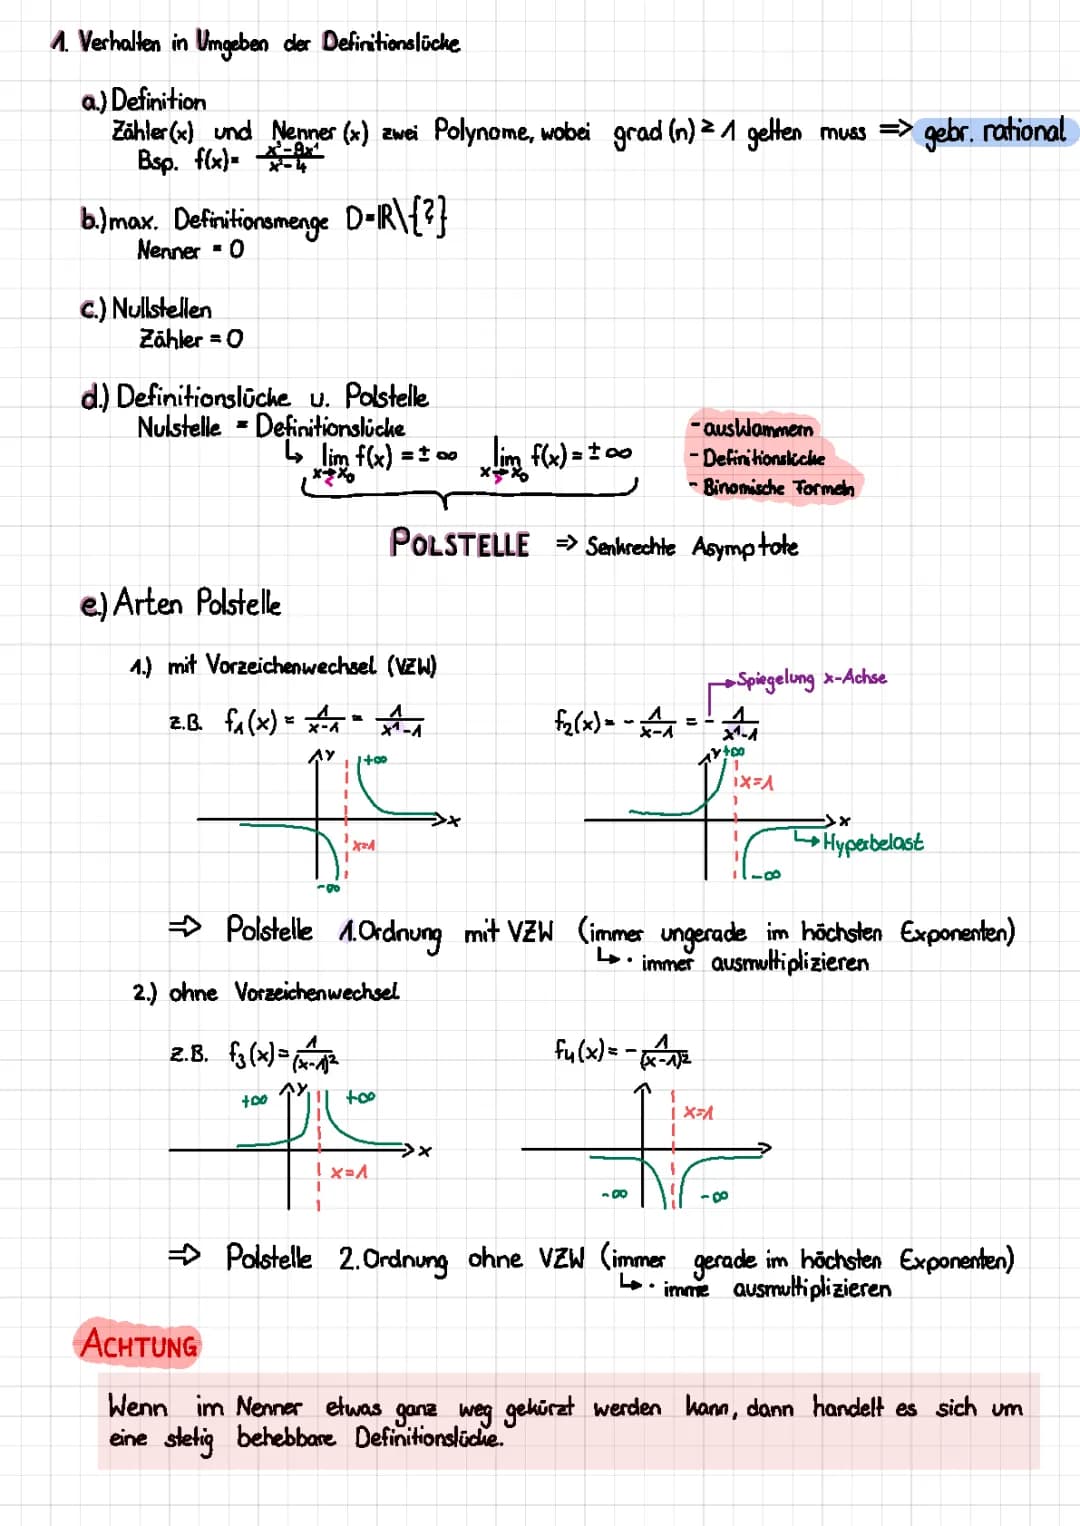 1. Verhalten in Umgeben der Definitionslücke
a.) Definition
Zähler(x) und Nenner (x) zwei Polynome, wobei grad (n) ≥ 1 gelten muss => gebr. rational
Bsp. f(x)=
b.) max. Definitionsmenge D=ℝ\{?}
Nenner = 0
c.) Nullstellen
Zähler = 0
d.) Definitionslücke u. Polstelle
Nulstelle = Definitionslücke
↳ lim f(x) = ± ∞ lim f(x) = ± ∞
x→x₀ x→x₀
- ausklammern
- Definitionslücke
- Binomische Formeln
POLSTELLE => Senkrechte Asymptote
e.) Arten Polstelle
1.) mit Vorzeichenwechsel (VZW)
Spiegelung x-Achse
z.B. f₁(x) = 1/(x-1) = 1/(x¹-1) f₂(x) = - 1/(x-1) = - 1/(x¹-1)
y +∞ y +∞
x=1
x x
x=1 ↳ Hyperbelast
-∞ -∞
=> Polstelle 1.Ordnung mit VZW (immer ungerade im höchsten Exponenten)
↳ · immer ausmultiplizieren
2.) ohne Vorzeichenwechsel
z.B. f₃(x) = 1/(x-1)² f₄(x) = - 1/(x-1)²
+∞ y +∞
x=1
x
x=1
-∞ -∞
=> Polstelle 2.Ordnung ohne VZW (immer gerade im höchsten Exponenten)
↳ · imme ausmultiplizieren
ACHTUNG
Wenn im Nenner etwas ganz weg gekürzt werden kann, dann handelt es sich um
eine stetig behebbare Definitionslücke.